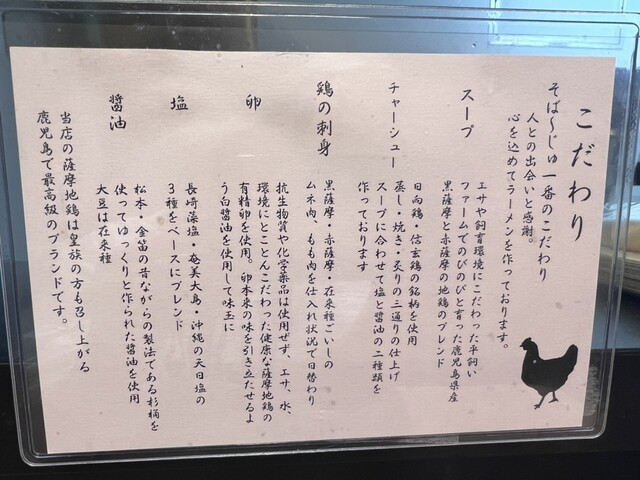 こだわり
そば〜じゅ一番のこだわり
人との出会いと感謝。
心を込めてラーメンを作っております。
スープ
エサや飼育環境にこだわった平飼い
ファームでのびのびと育った鹿児島県産
黒薩摩と赤薩摩の地鶏のブレンド
チャーシュー
日向鶏・信玄鶏の銘柄を使用
蒸し・焼き・炙りの三通りの仕上げ
スープに合わせて塩と醤油の二種類を
作っております
鶏の刺身
黒薩摩・赤薩摩・在来種ごいしの
ムネ肉、もも肉を仕入れ状況で日替わり
卵
抗生物質や化学薬品は使用せず、エサ、水、
環境にとことんこだわった健康な薩摩地鶏の
有精卵を使用。卵本来の味を引き立たせるよ
う白醤油を使用して味玉に
塩
長崎藻塩・奄美大島・沖縄の天日塩の
3種をベースにブレンド
醤油
松本・金笛の昔ながらの製法である杉桶を
使ってゆっくりと作られた醤油を使用
大豆は在来種
当店の薩摩地鶏は皇族の方も召し上がる
鹿児島で最高級のブランドです。